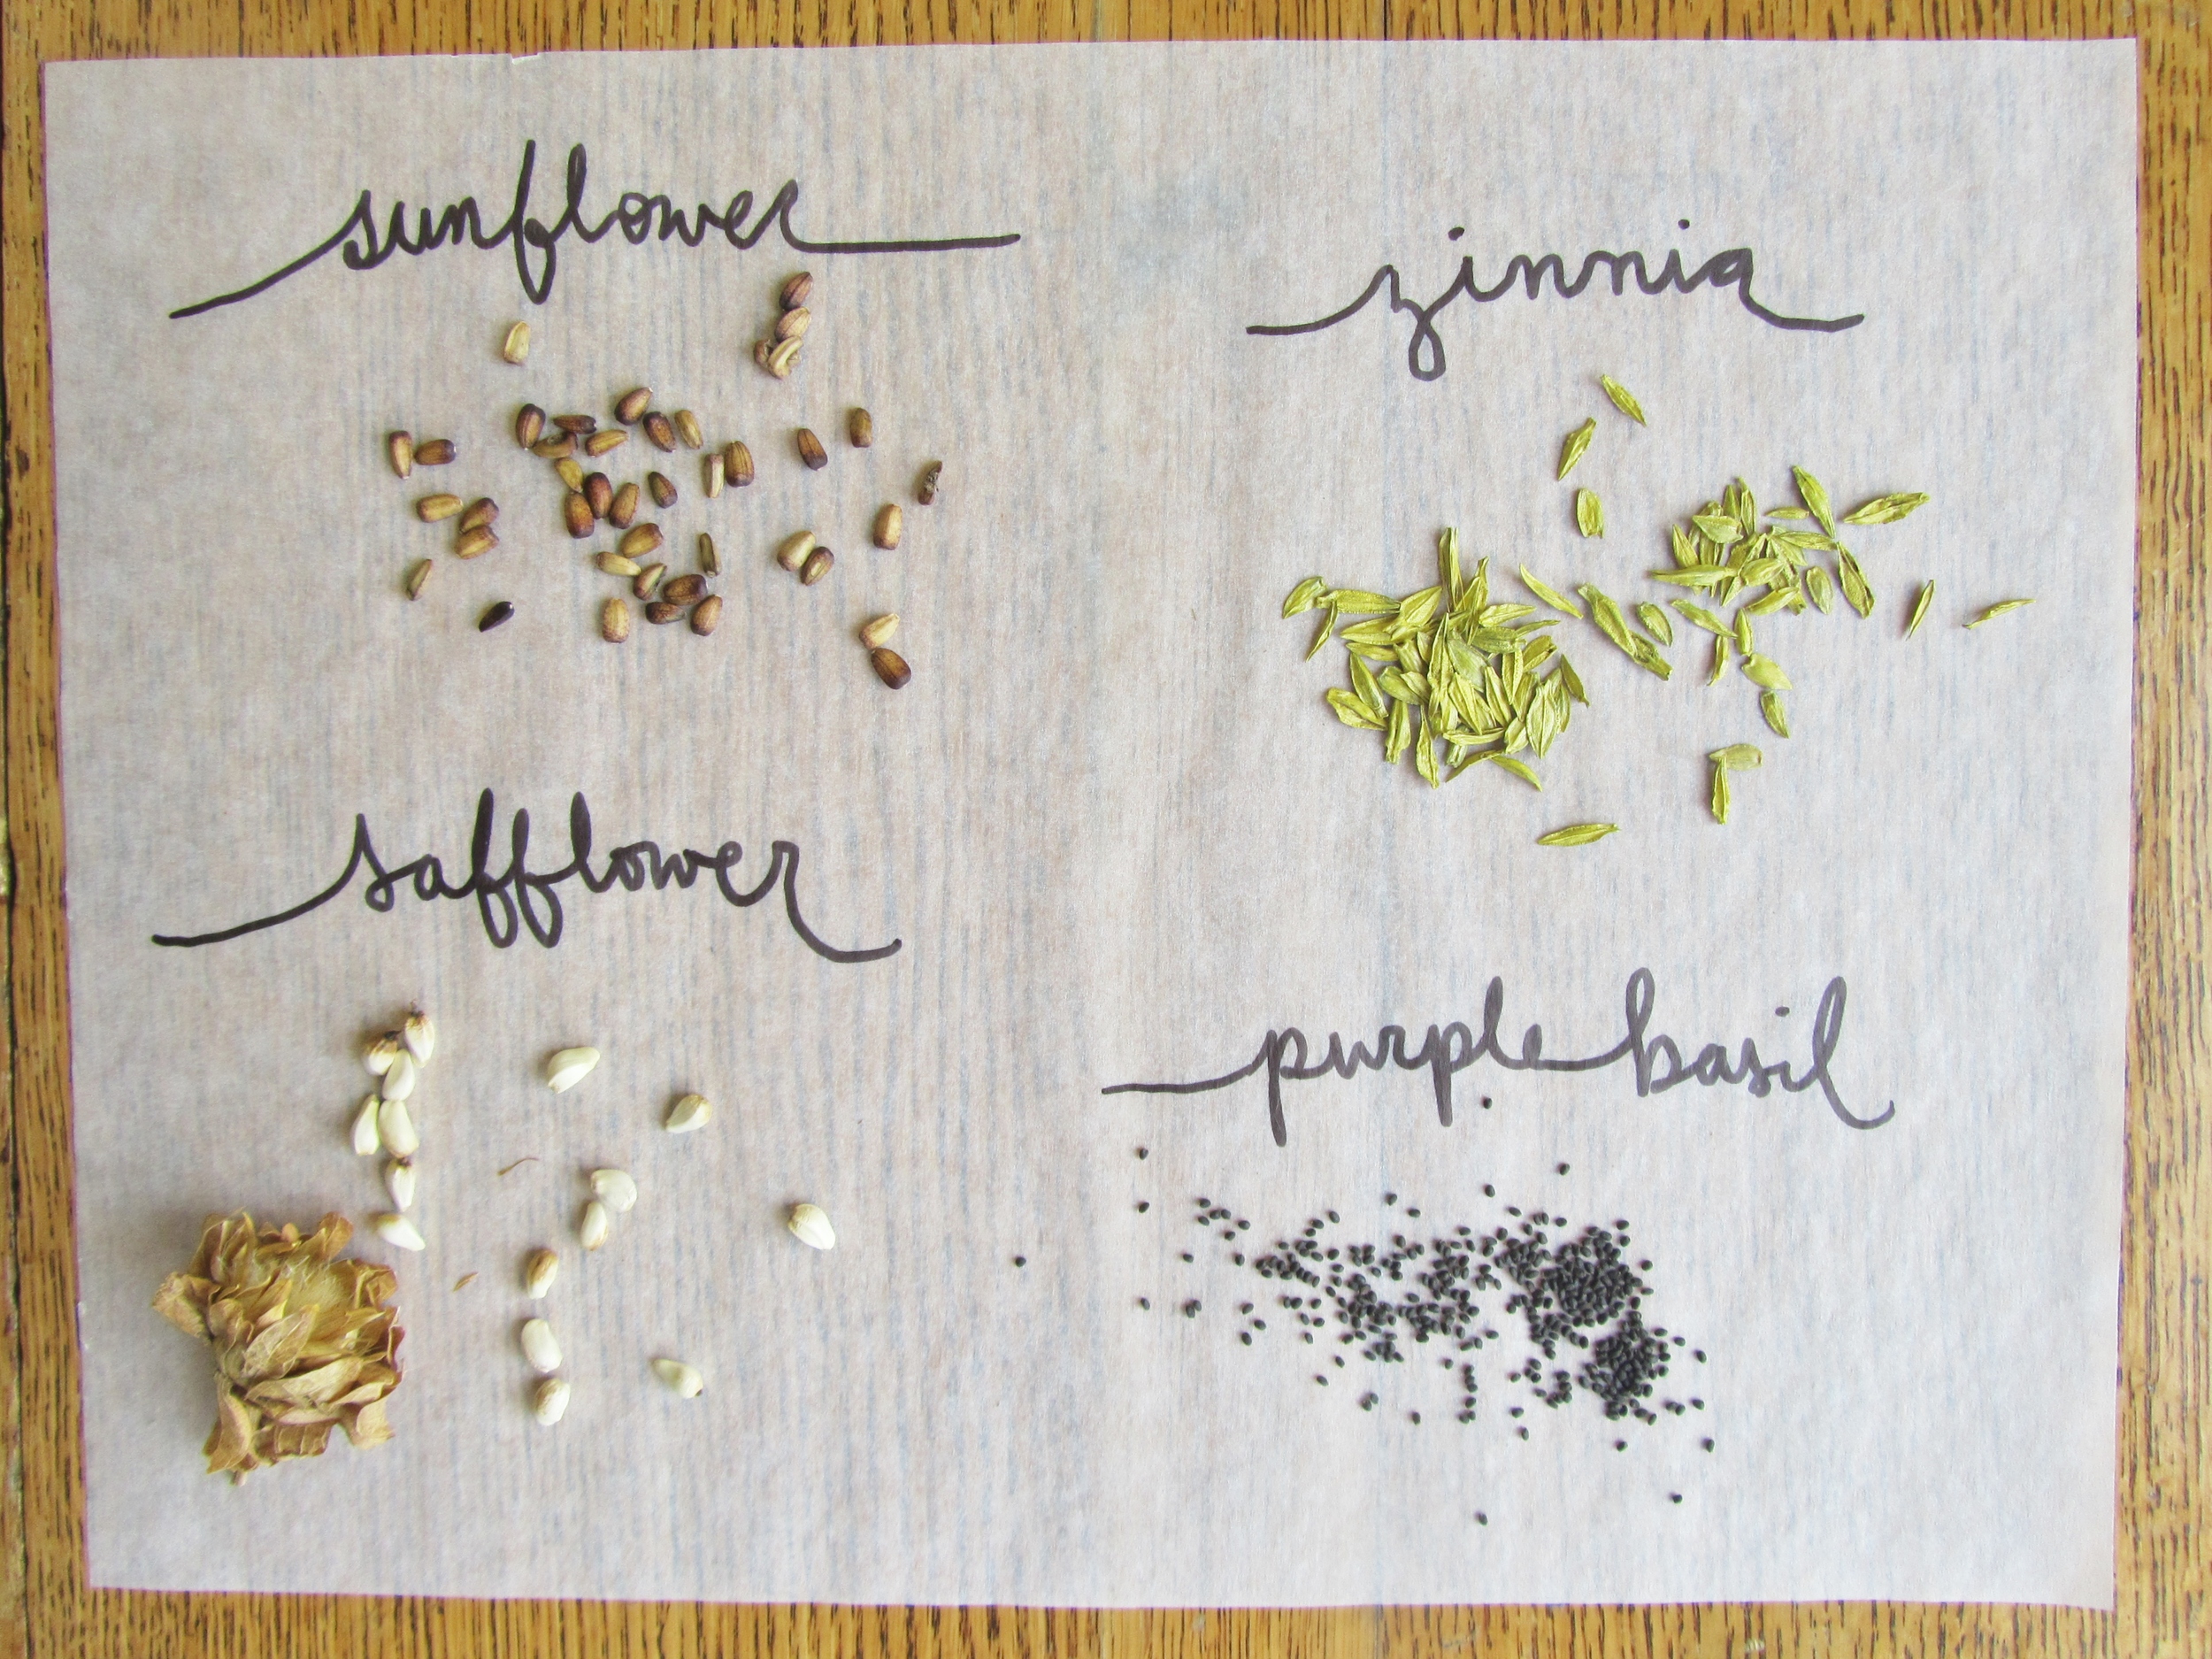 sunflower
zinnia
safflower
purple basil